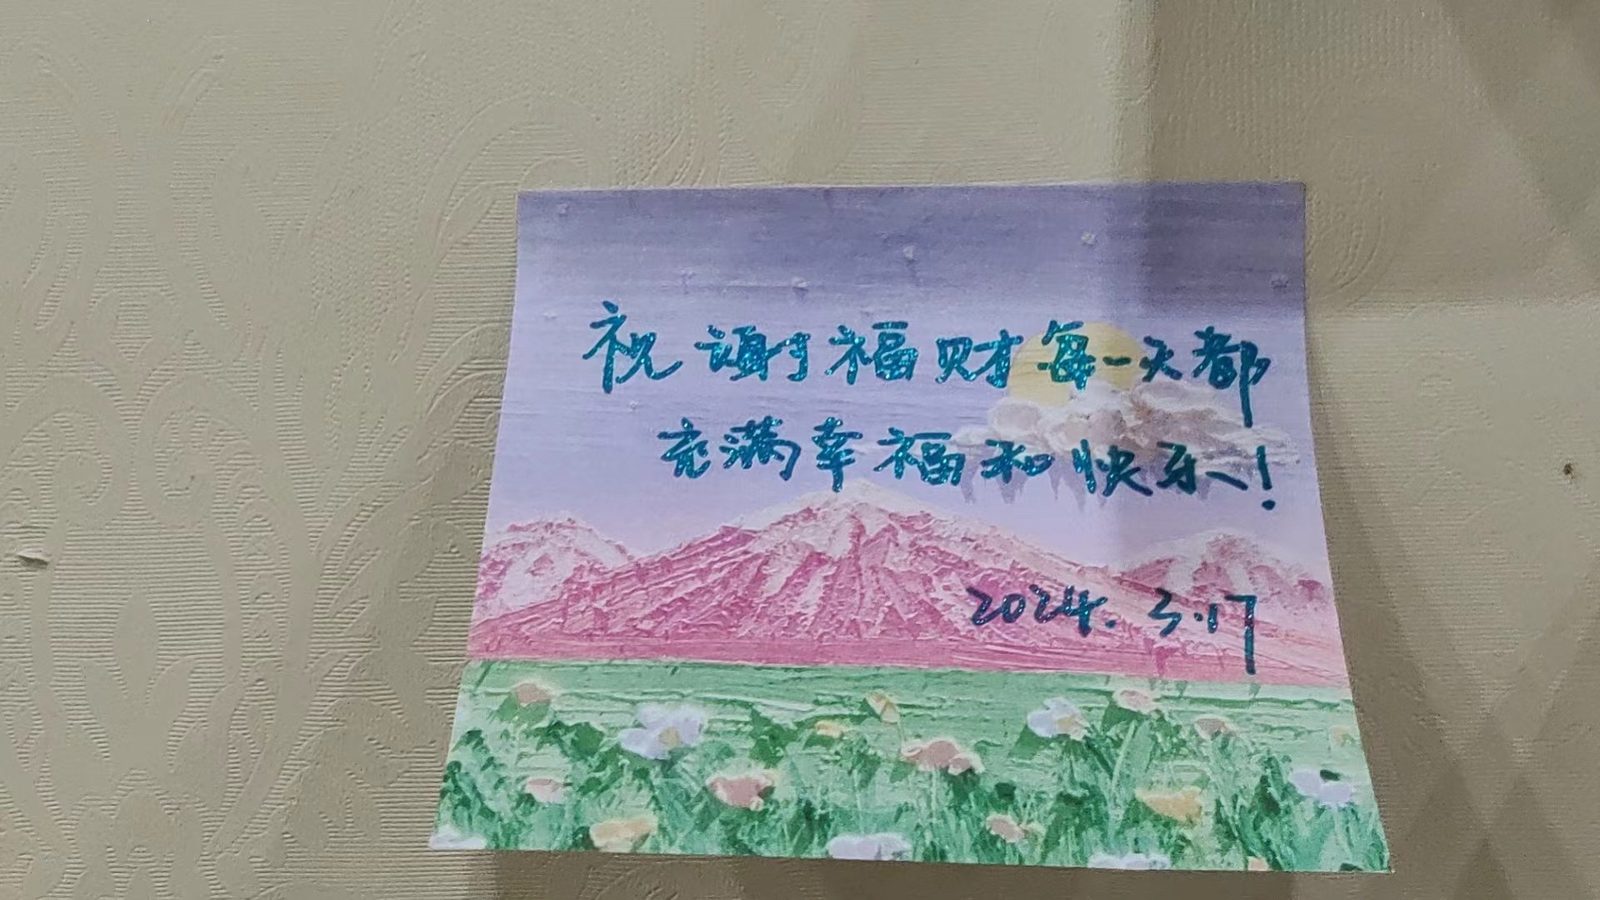 祝谢福财每一天都
充满幸福和快乐！
2024.3.17